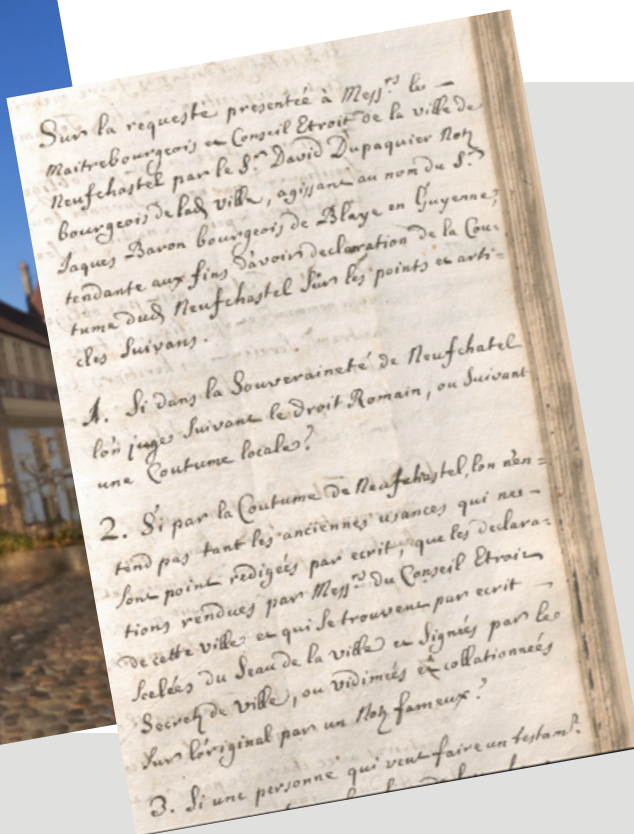 Sur la requeste presentée à Mess.rs les —
Maitrebourgeois et Conseil Etroit de la ville de
Neufchastel par le S.r David Dupaquier Not.
bourgeois de lad. ville, agissant au nom du S.r
Jaques Baron bourgeois de Blaye en Guyenne,
tendante aux fins d'avoir declaration de la Cou-
tume dud. Neufchastel sur les points et arti-
cles suivans.
1. Si dans la Souveraineté de Neufchatel
lon juge suivant le droit Romain, ou suivant
une Coutume locale?
2. Si par la Coutume de Neufchastel, lon n'en =
tend pas tant les anciennes usances qui ne —
sont point redigées par ecrit, que les declara=
tions rendues par Mess.rs du Conseil Etroit
de cette ville et qui se trouvent par ecrit —
scelées du Seau de la ville et signées par le
Secret. de ville, ou vidimées et collationnées
sur l'original par un Not. fameux?
3. Si une personne qui veut faire un testam.t